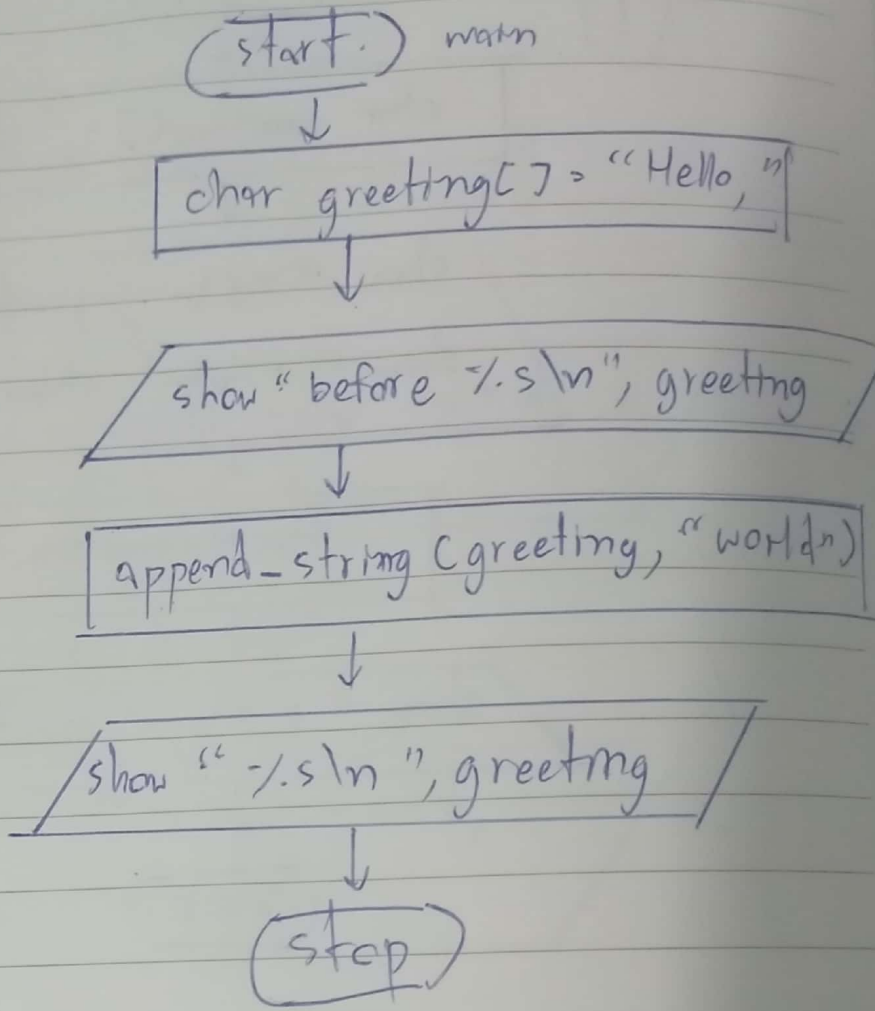 start. main
char greeting[] = "Hello,"
show "before %s\n", greeting
append_string (greeting, "world")
show "%s\n", greeting
stop